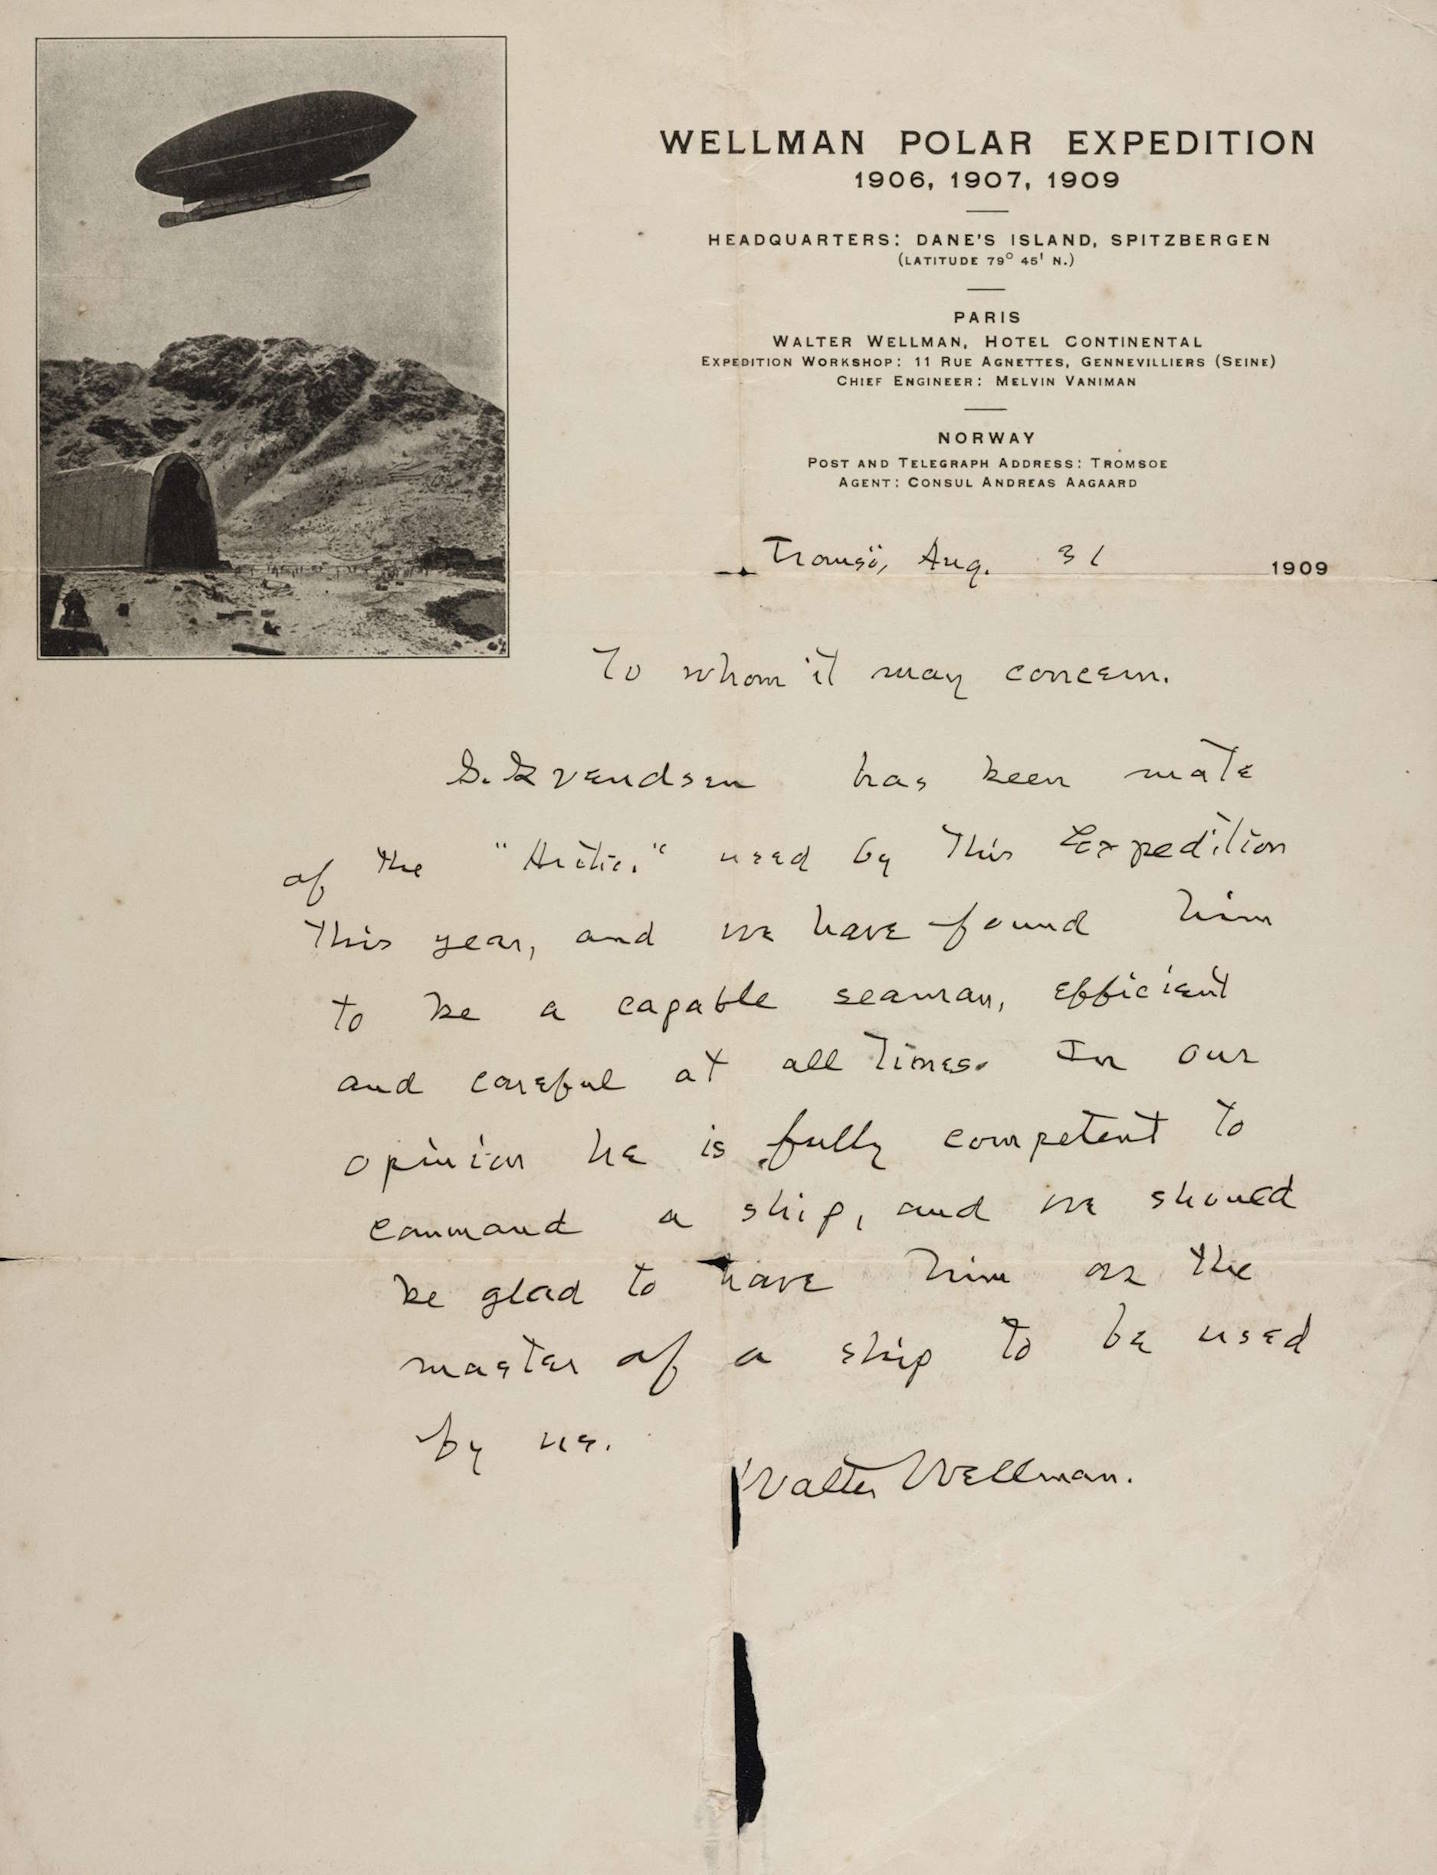 WELLMAN POLAR EXPEDITION
1906, 1907, 1909
HEADQUARTERS: DANE'S ISLAND, SPITZBERGEN
(LATITUDE 79° 45' N.)
PARIS
WALTER WELLMAN, HOTEL CONTINENTAL
EXPEDITION WORKSHOP: 11 RUE AGNETTES, GENNEVILLIERS (SEINE)
CHIEF ENGINEER: MELVIN VANIMAN
NORWAY
POST AND TELEGRAPH ADDRESS: TROMSOE
AGENT: CONSUL ANDREAS AAGAARD
Tromsö, Aug. 31 1909
To whom it may concern.
Svendsen has been mate
of the "Arctic," used by this Expedition
this year, and we have found him
to be a capable seaman, efficient
and careful at all times. In our
opinion he is fully competent to
command a ship, and we should
be glad to have him as the
master of a ship to be used
by us.
Walter Wellman.